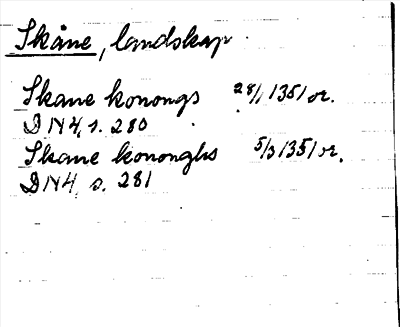 Skåne, landskap
Skane konongs 28/1 1351 or.
DN4, s. 280
Skane kononghs 5/3 1351 or.
DN4, s. 281